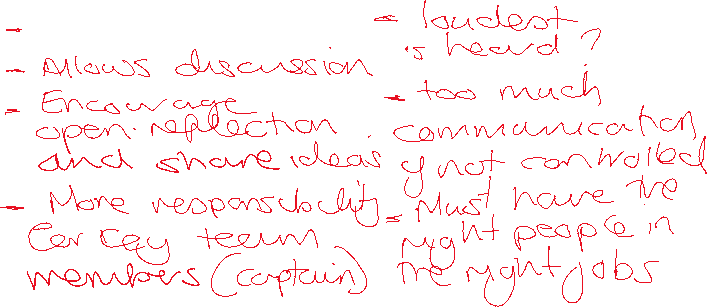 -
- Allows discussion
- Encourage
open reflection
and share ideas
- More responsibility
for key team
members (captain)
- loudest
is heard?
- too much
communication
if not controlled
- Must have the
right people in
the right jobs